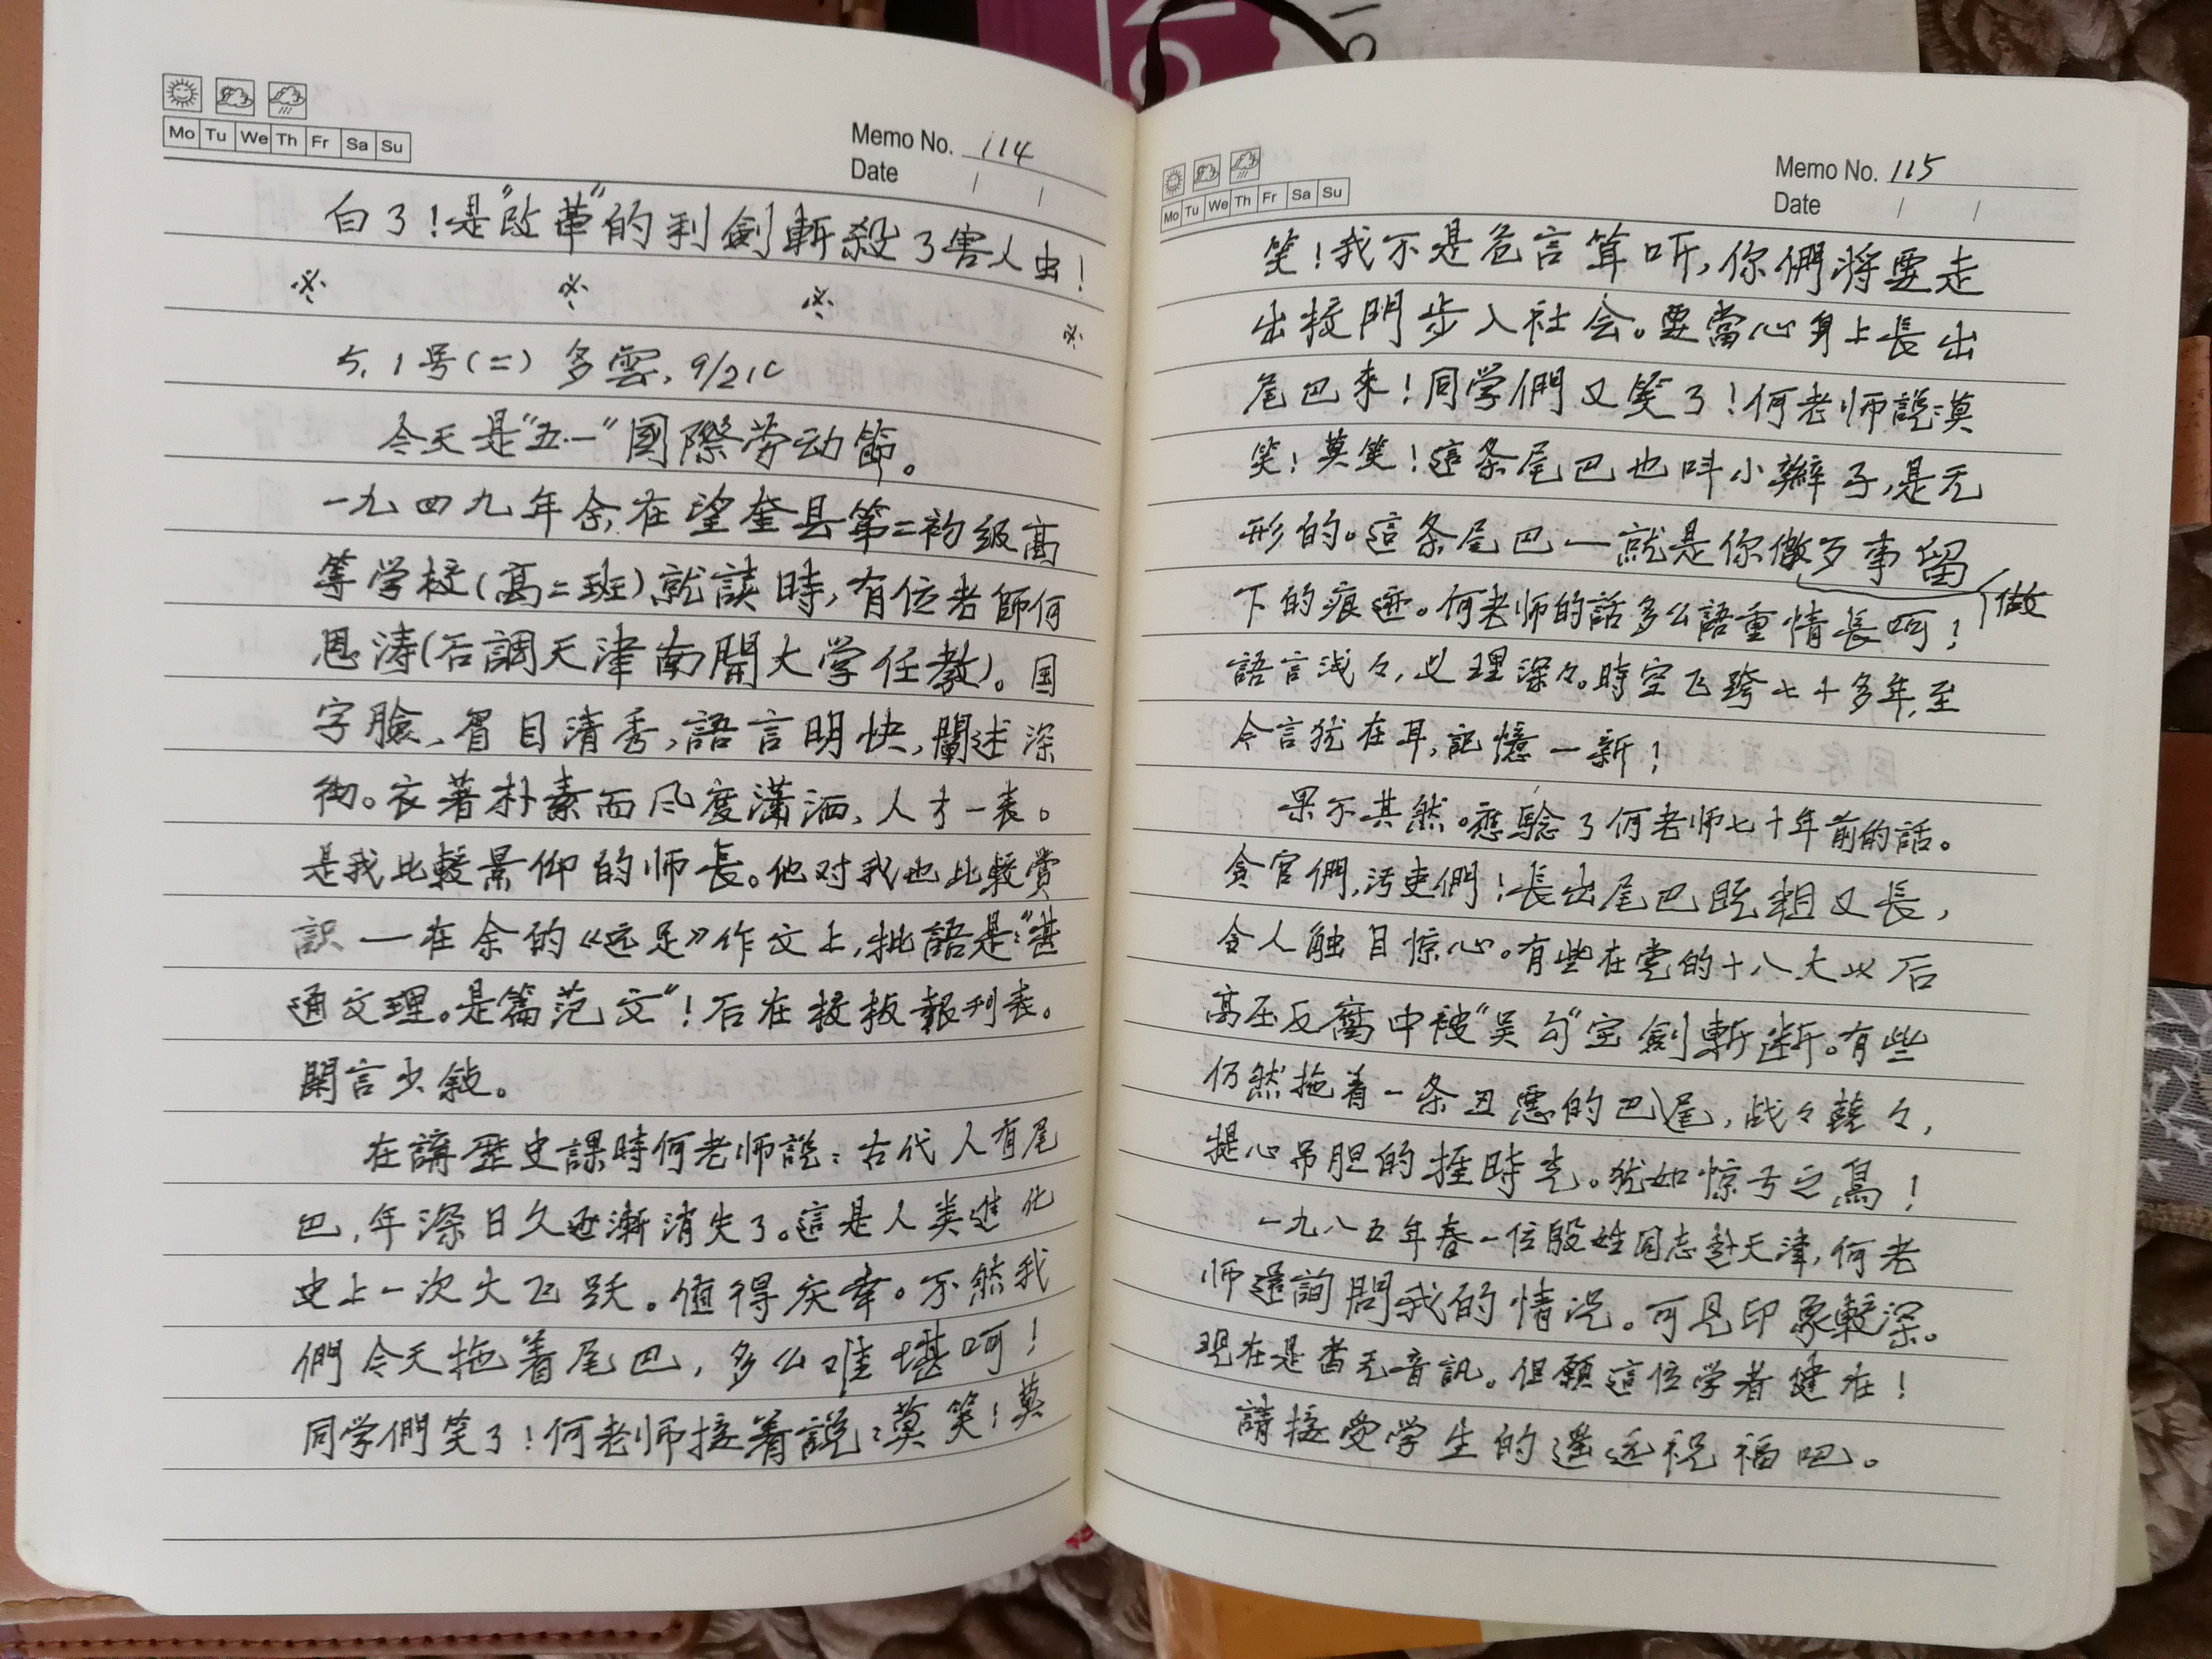 Mo Tu We Th Fr Sa Su
Memo No. 114
Date / /
白了！是"改革"的利劍斬殺了害人虫！
※ ※ ※ ※
5.1号(二) 多雲，9/21C
今天是"五·一"國際劳动節。
一九四九年余在望奎县第二初级高
等学校(高二班)就读時，有位老師何
恩涛(后調天津南開大学任教)。国
字臉、眉目清秀，語言明快，闡述深
彻。衣著朴素而风度瀟洒、人才一表。
是我比較景仰的师長。他对我也比較賞
識—在余的《远足》作文上，批語是："甚
通文理。是篇范文"！后在校板報刊表。
閑言少敍。
在講歷史課時何老师說：古代人有尾
巴，年深日久逐漸消失了。這是人类進化
史上一次大飞跃。值得庆幸。不然我
們今天拖着尾巴，多么难堪呵！
同学們笑了！何老师接着説：莫笑！莫
Mo Tu We Th Fr Sa Su
Memo No. 115
Date / /
笑！我不是危言耸听，你們將要走
出校門步入社会。要當心身上長出
尾巴來！同学們又笑了！何老师說：莫
笑！莫笑！這条尾巴也叫小辮子，是无
形的。這条尾巴—就是你做歹事留
做
下的痕迹。何老师的話多么語重情長呵！
語言浅々，义理深々。時空飞跨七十多年，至
今言犹在耳，記憶一新！
果不其然。應驗了何老师七十年前的話。
貪官們，污吏們！長出尾巴既粗又長，
令人触目惊心。有些在党的十八大以后
高压反腐中被"吴勾"宝劍斬断。有些
仍然拖着一条丑惡的巴尾，战々兢々，
提心吊胆的捱時光。犹如惊弓之鳥！
一九八五年春一位殷姓同志赴天津，何老
师還詢問我的情况。可見印象較深。
現在是杳无音訊。但願這位学者健在！
請接受学生的遙远祝福吧。